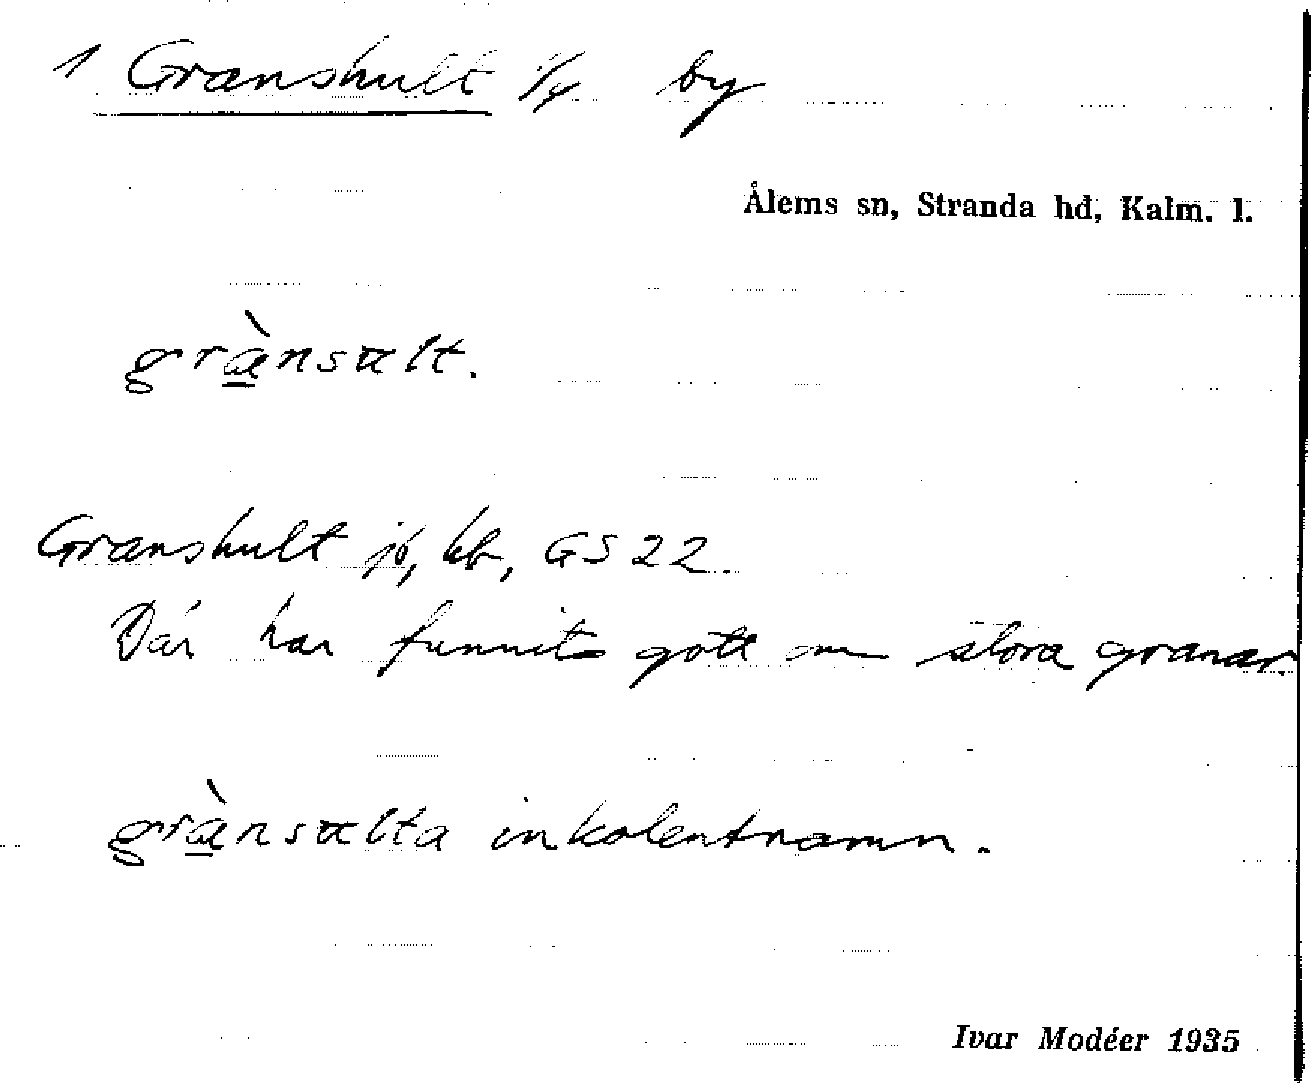 1 Granshult 1/4 by
Ålems sn, Stranda hd, Kalm. l.
grànsult.
Granshult jb, kb, GS 22.
Där har funnits gott om stora granar.
grànsulta inkolentnamn.
Ivar Modéer 1935